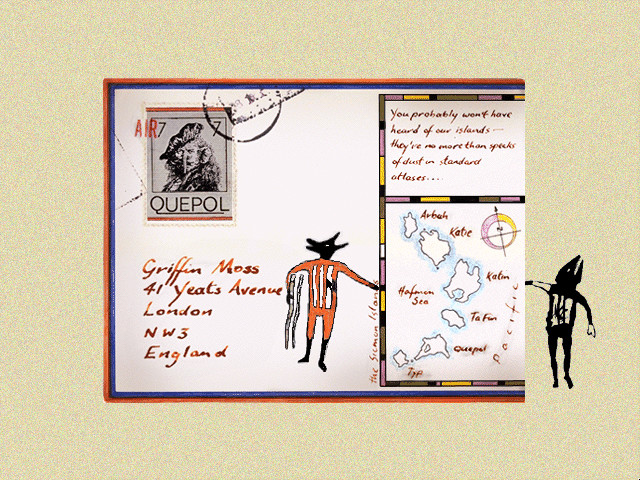 AIR 7 7
QUEPOL
Griffin Moss
41 Yeats Avenue
London
NW3
England
You probably won't have
heard of our islands —
they're no more than specks
of dust in standard
atlases....
Arbah
Katie
Katin
Hofman
Sea
Ta Fin
Quepol
Typ
the Sicmon Islands
Pacific